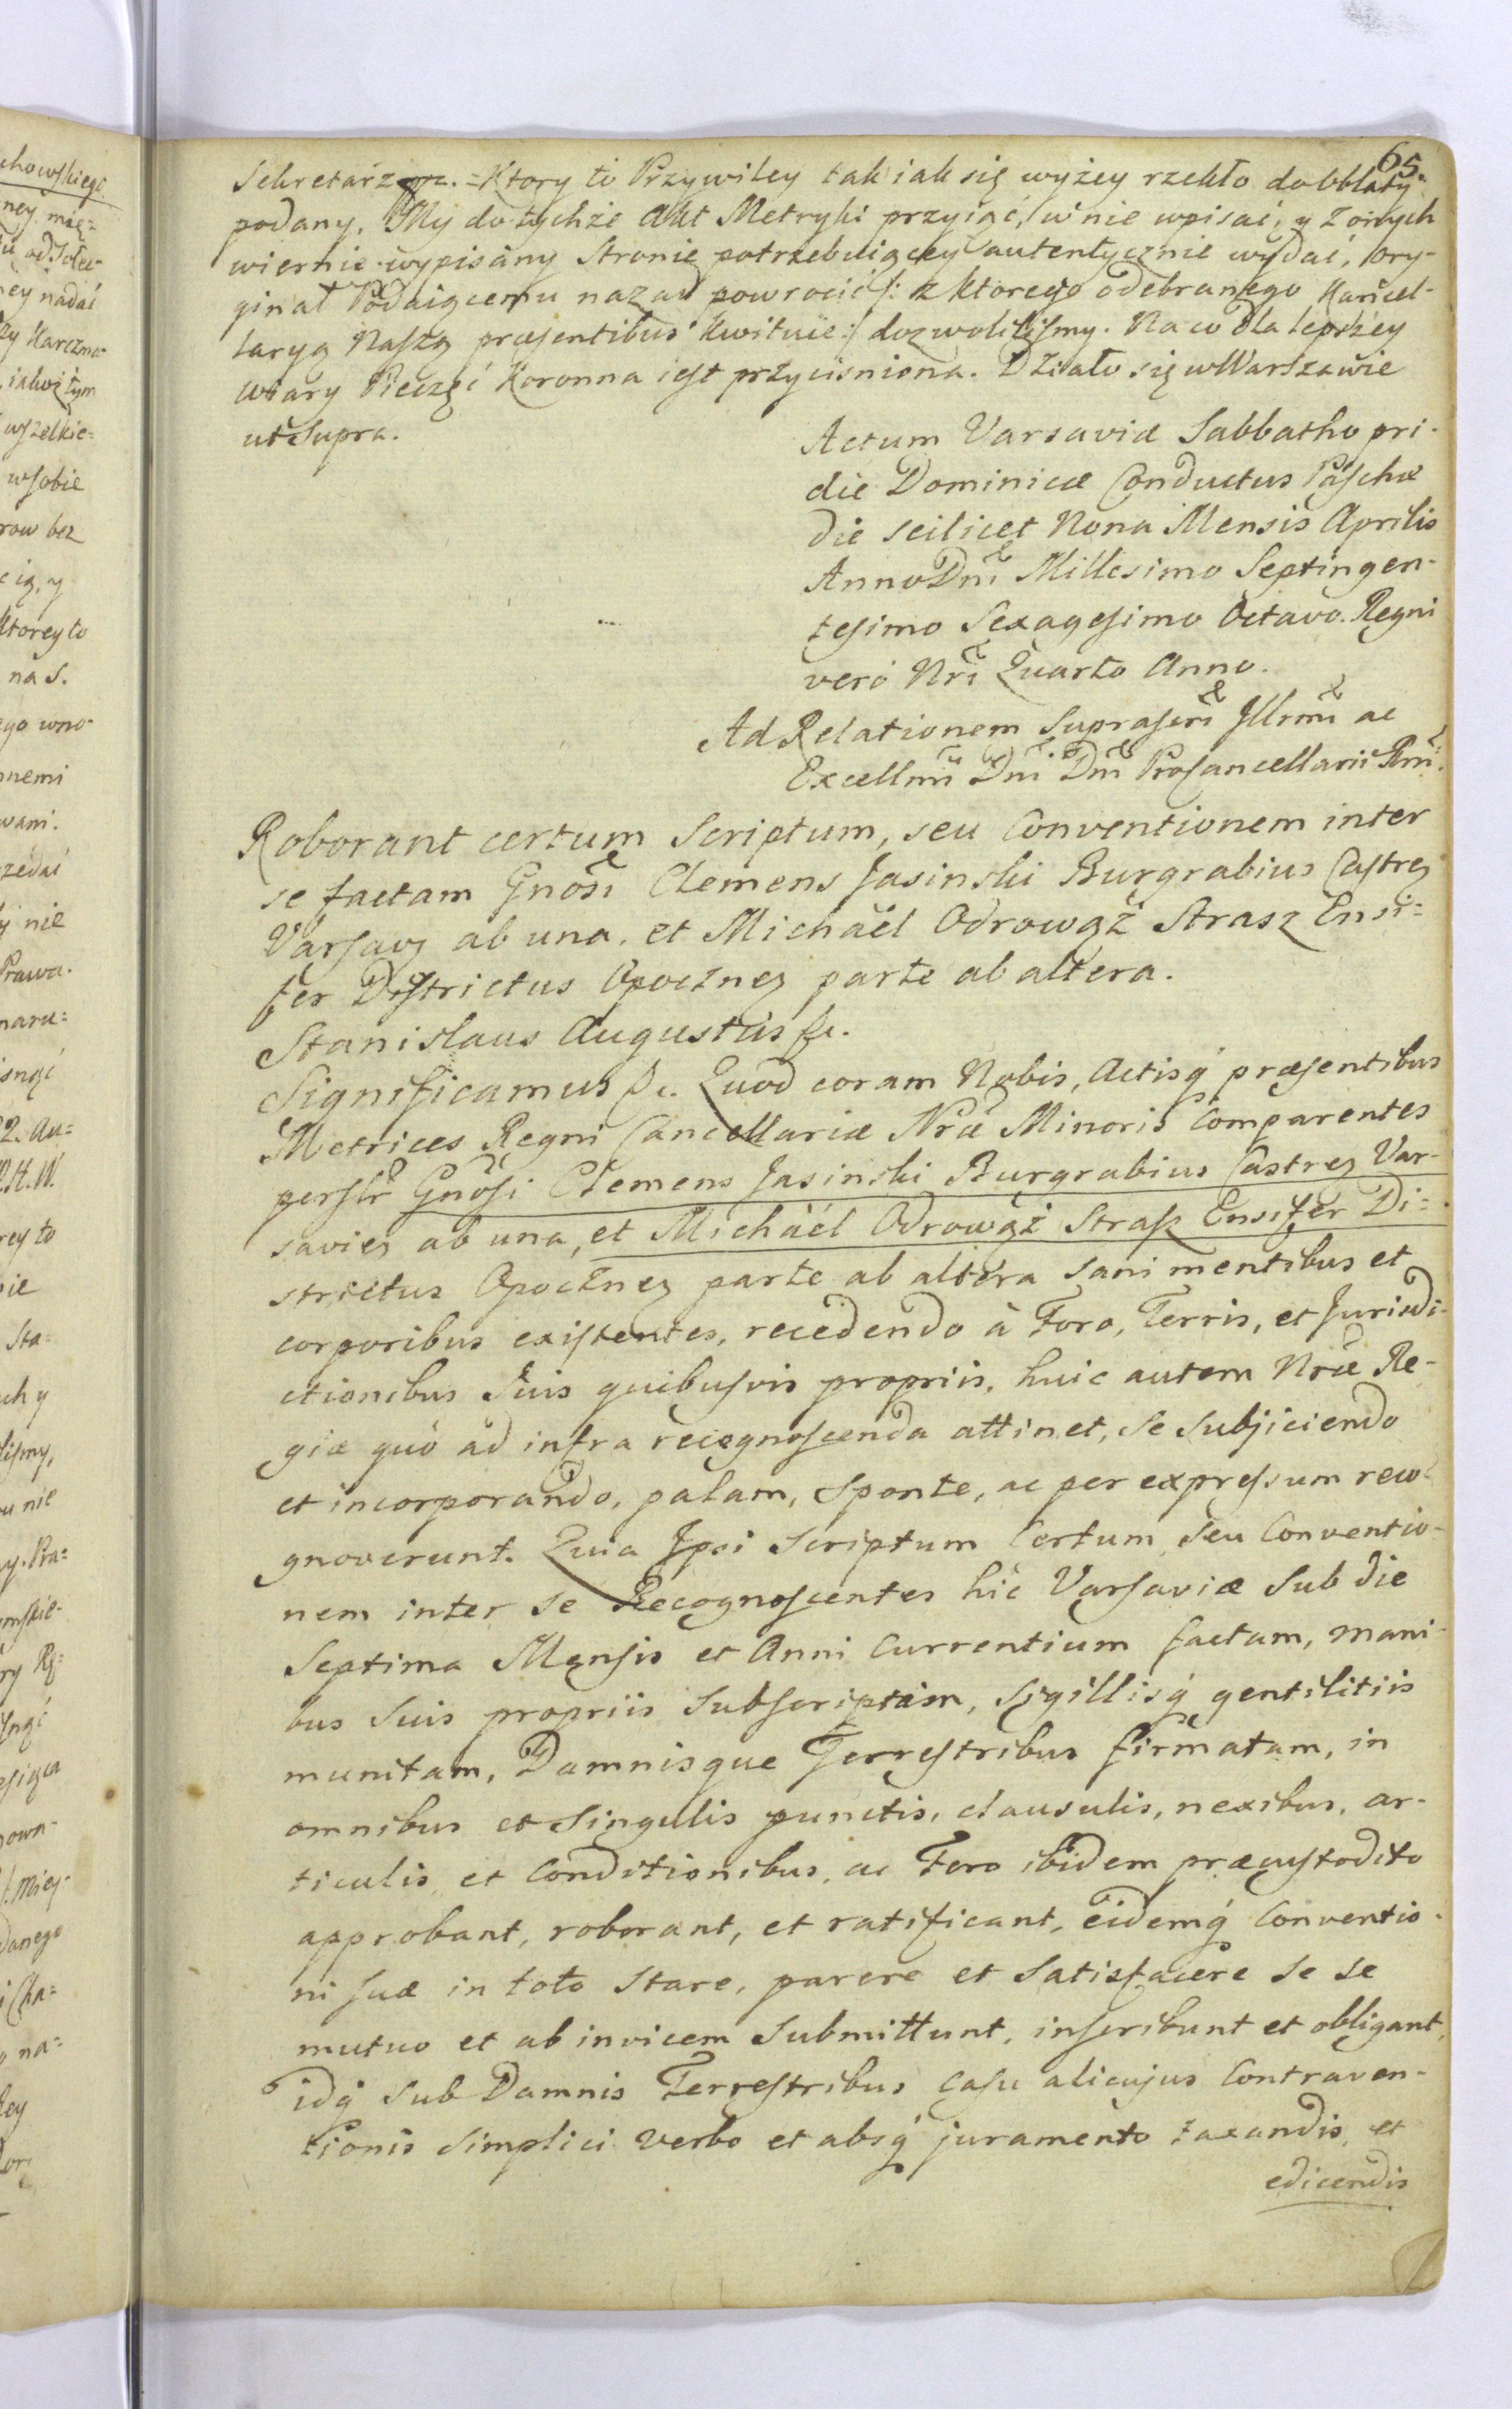 65
Sekretarz mp. = Ktory to Przywiley tak iak się wyżey rzekło do obblaty
podany, My do tychże Akt Metryki przyiąć, w nie wpisać, y z onych
wiernie wypisany Stronie potrzebuiącey autentycznie wydać, ory-
ginał Podaiącemu nazad powrocić /: z ktorego odebranego Kancel-
laryą Naszą præsentibus kwituie :/ dozwolilismy. Na co dla lepszey
wiary Pieczęć Koronna iest przycisniona. Działo się w Warszawie
ut supra.
Actum Varsaviæ Sabbatho pri-
die Dominicæ Conductus Paschæ
die scilicet Nona Mensis Aprilis
Anno Dni Millesimo Septingen-
tesimo Sexagesimo Octavo. Regni
vero Nri Quarto Anno.
Ad Relationem Suprascri Illrmi ac
Excellmi Dni Dni ProCancellarii Rni.
Roborant certum Scriptum, seu Conventionem inter
se factam Gnosi Clemens Jasinski Burgrabius Castren
Varsavˢ ab una, et Michaël Odrowąż Strasz Ensi-
fer Districtus Opocznen parte ab altera.
Stanislaus Augustus &c.
Significamus &c. Quod coram Nobis, Actisq́ præsentibus
Metrices Regni Cancellariæ Nræ Minoris Comparentes
perslr Gnosi Clemens Jasinski Burgrabius Castren Var-
savien ab una, et Michaël Odrowąż Strasz Ensifer Di-
strictus Opocznen parte ab altera Sani mentibus et
corporibus existentes, recedendo à Foro, Terris, et Jurisdi-
ctionibus Suis quibusvis propriis, huic autem Nræ Re-
giæ quò ad infra recognoscenda attinet, Se Subjiciendo
et incorporando, palam, Sponte, ac per expressum reco-
gnoverunt. Quia Ipsi Scriptum Certum seu Conventio-
nem inter Se Recognoscentes hic Varsaviæ Sub die
Septima Mensis et Anni Currentium factam, mani-
bus Suis propriis Subscriptam, Sigillisq́ gentilitiis
munitam, Damnisque Terrestribus firmatam, in
omnibus et Singulis punctis, clausulis, nexibus, ar-
ticulis et Conditionibus, ac Foro ibidem præcustodito
approbant, roborant, et ratificant, eidemq́ Conventio-
ni Suæ in toto Stare, parere et Satisfacere Se se
mutuo et ab invicem Submittunt, inscribunt et obligant,
idq́ Sub Damnis Terrestribus Casu alicujus Contraven-
tionis Simplici verbo et absq́ juramento taxandis et
edicendis